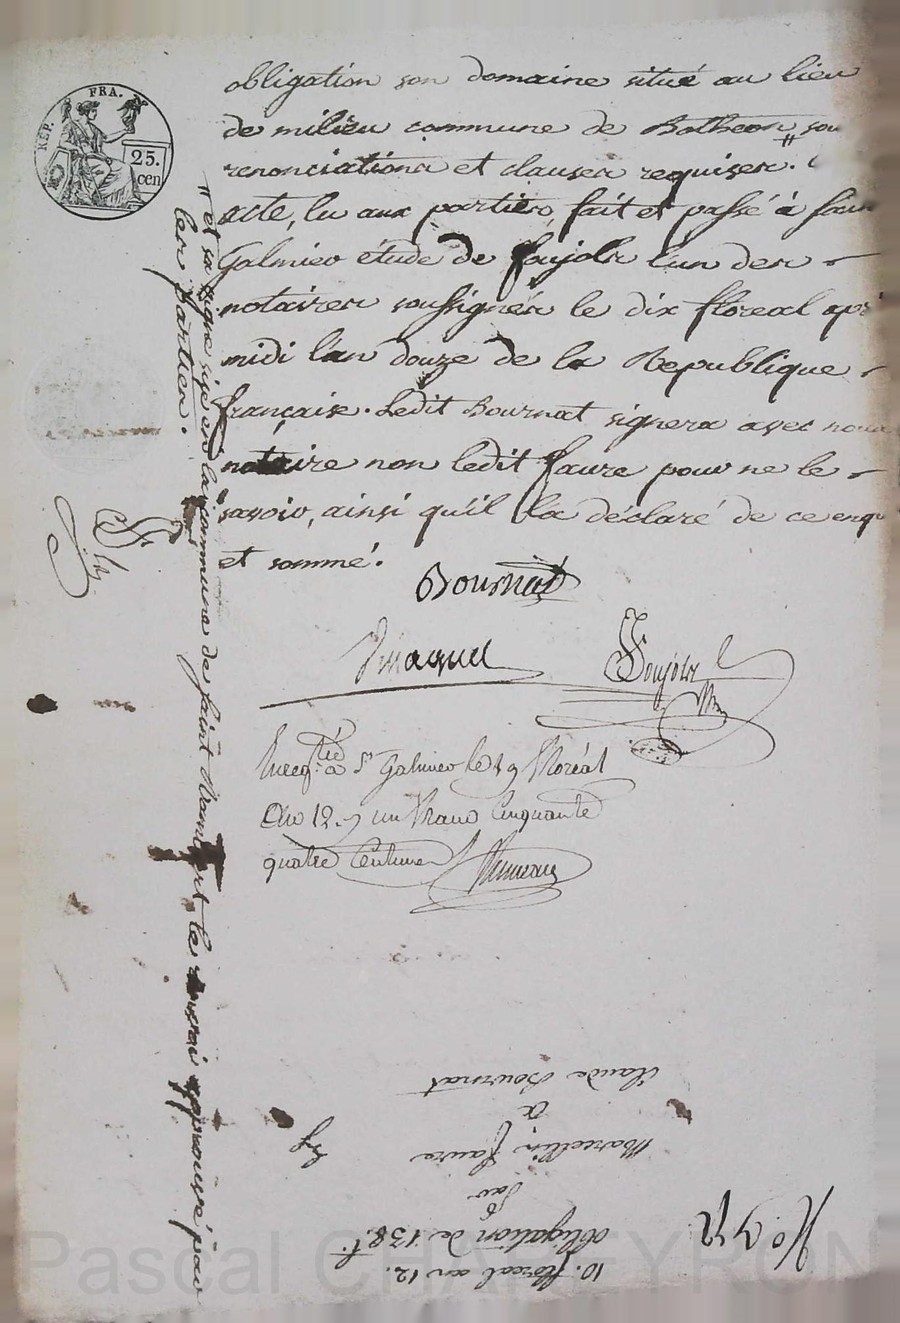 REP. FRA.
25.
cen
obligation son domaine situé au lieu
de milieu commune de Botheon, sou
renonciations et clauses requises.
acte, lu aux parties, fait et passé à sain
Galmier étude de Foujols l'un des
notaires soussignés le dix floreal apr
midi l'an douze de la Republique
française. Ledit Bournat signera avec nous
notaire non ledit faure pour ne le
savoir, ainsi qu'il l'a déclaré de ce enq
et sommé.
Bournat
Foujols
Enregtré à St Galmier le 19 floréal
an 12. un franc cinquante
quatre centimes
et sa vigne sise en la commune de saint Rambert, le renvoi approuvé par
les parties.
10. floreal an 12.
obligation de 138 f.
par
Marcellin faure
a
Claude Bournat